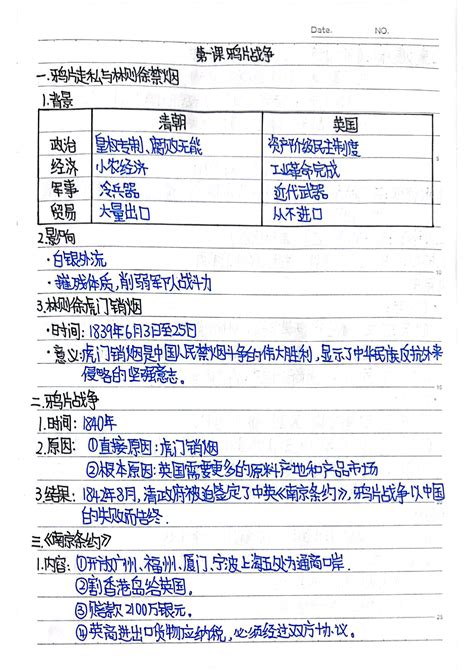 Date. NO.
第一课 鸦片战争
一.鸦片走私与林则徐禁烟
1.背景
清朝 英国
政治 皇权专制、腐败无能 资产阶级民主制度
经济 小农经济 工业革命完成
军事 冷兵器 近代武器
贸易 大量出口 从不进口
2.影响
·白银外流
·摧残体质,削弱军队战斗力
3.林则徐虎门销烟
·时间:1839年6月3日至25日
·意义:虎门销烟是中国人民禁烟斗争的伟大胜利,显示了中华民族反抗外来
侵略的坚强意志。
二.鸦片战争
1.时间:1840年
2.原因:①直接原因:虎门销烟
②根本原因:英国需要更多的原料产地和产品市场
3.结果:1842年8月,清政府被迫签定了中英《南京条约》,鸦片战争以中国
的失败而告终.
三.《南京条约》
1.内容:①开放广州、福州、厦门、宁波上海五处为通商口岸.
②割香港岛给英国.
③赔款2100万银元.
④英商进出口货物应纳税,必须经过双方协议。